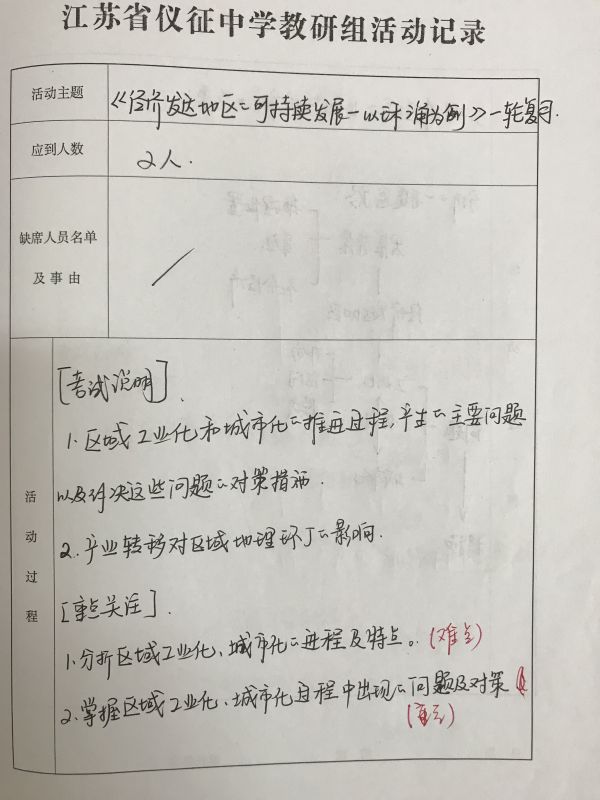 江苏省仪征中学教研组活动记录
活动主题
《经济发达地区的可持续发展—以珠三角为例》一轮复习.
应到人数
2人.
缺席人员名单
及事由
活动过程
[考试说明].
1.区域工业化和城市化的推进过程,产生的主要问题
以及解决这些问题的对策措施.
2.产业转移对区域地理环境的影响.
[重点关注].
1.分析区域工业化、城市化的进程及特点。(难点)
2.掌握区域工业化、城市化过程中出现的问题及对策
(重点)